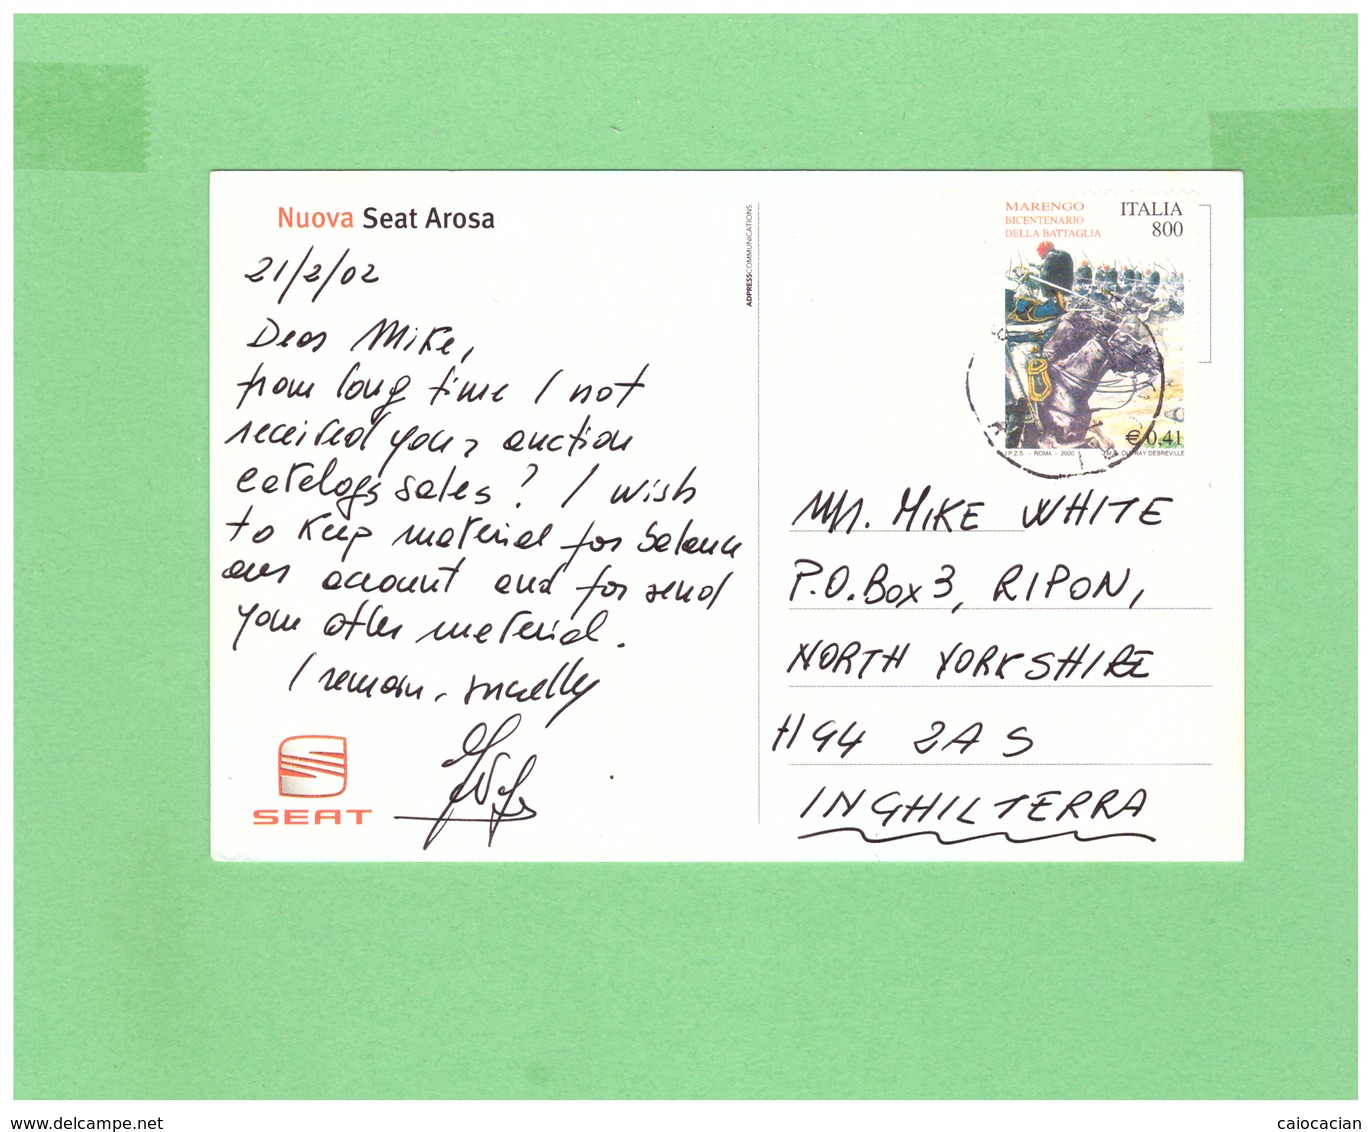 Nuova Seat Arosa
21/2/02
Dear Mike,
from long time I not
received your auction
catalogs sales? I wish
to keep material for balance
our account and for send
you other material.
I remain, sincelly
SEAT
ADPRESSCOMMUNICATIONS
MARENGO
BICENTENARIO
DELLA BATTAGLIA
ITALIA
800
€ 0,41
I.P.Z.S. - ROMA - 2000
DUPRAY DEBREVILLE
Mr. MIKE WHITE
P.O. Box 3, RIPON,
NORTH YORKSHIRE
HG4 2AS
INGHILTERRA
www.delcampe.net
caiocacian